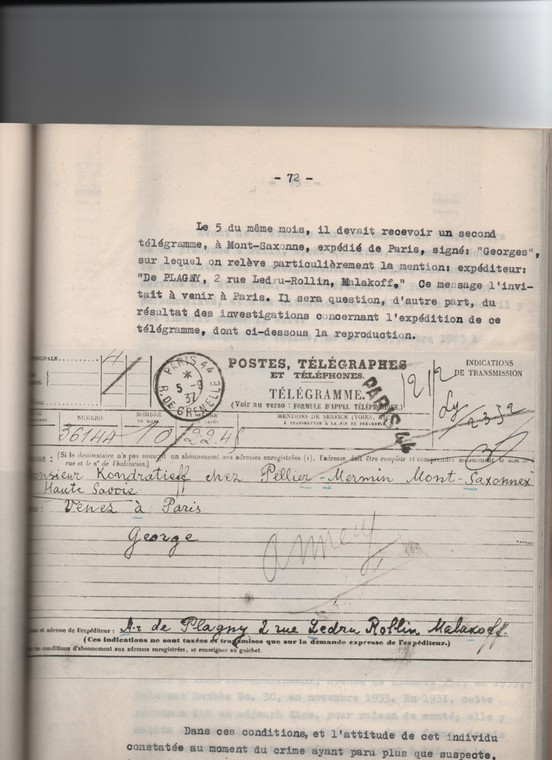 - 72 -
Le 5 du même mois, il devait recevoir un second
télégramme, à Mont-Saxonne, expédié de Paris, signé: "Georges",
sur lequel on relève particulièrement la mention: expéditeur:
"De PLAGNY, 2 rue Ledru-Rollin, Malakoff." Ce message l'invi-
tait à venir à Paris. Il sera question, d'autre part, du
résultat des investigations concernant l'expédition de ce
télégramme, dont ci-dessous la reproduction.
PARIS 44
5 -9
37
R. DE GRENELLE
POSTES, TÉLÉGRAPHES
ET TÉLÉPHONES.
TÉLÉGRAMME.
(Voir au verso : FORMULE D'APPEL TÉLÉPHONIQUE.)
INDICATIONS
DE TRANSMISSION
PARIS 44
Ly 2352
NUMÉRO
NOMBRE
MENTIONS DE SERVICE
36144 10
(Si le destinataire n'a pas souscrit un abonnement aux adresses enregistrées (1), l'adresse doit être complète et comprendre
rue et le n° de l'habitation.)
onsieur Kondratieff chez Pellier-Mermin Mont-Saxonnex
Haute Savoie
Venez à Paris
George
Annecy
et adresse de l'expéditeur : Mr de Plagny 2 rue Ledru Rollin Malakoff.
(Ces indications ne sont taxées et transmises que sur la demande expresse de l'expéditeur.)
conditions d'abonnement aux adresses enregistrées, se renseigner au guichet.
Dans ces conditions, et l'attitude de cet individu
constatée au moment du crime ayant paru plus que suspecte,